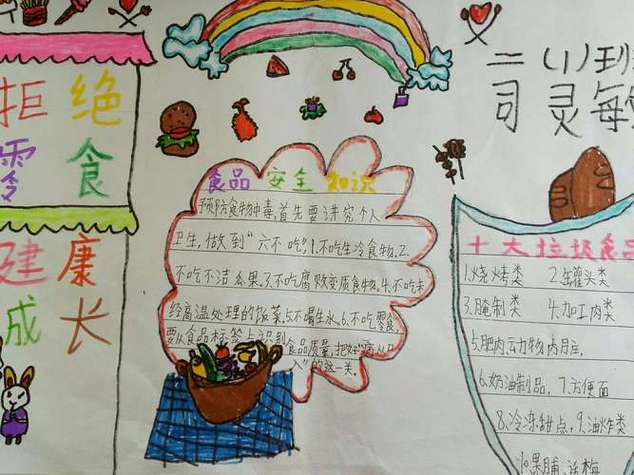 拒绝
零食
健康
成长
二(1)班
司灵每
食品安全知识
预防食物中毒,首先要讲究个人
卫生,做到“六不吃”:1.不吃生冷食物,2.
不吃不洁瓜果,3.不吃腐败变质食物,4.不吃未
经高温处理的饭菜,5.不喝生水,6.不吃零食,
要从食品标签上识别食品质量,把好“病从口
入”的这一关。
十大垃圾食品
1.烧烤类 2.罐头类
3.腌制类 4.加工肉类
5.肥肉动物内月庄,
6.奶油制品,7.方便面
8.冷冻甜点,9.油炸类
10果脯 话梅